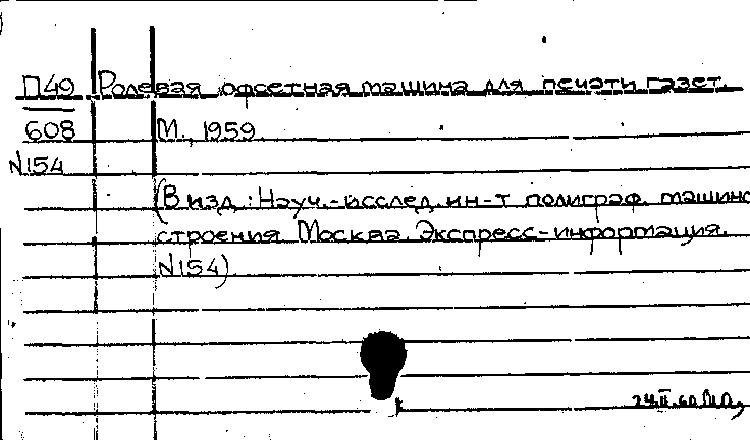 П49 Ролевая офсетная машина для печати газет.
608 М., 1959.
N154
(В изд.: Науч.-исслед. ин-т полиграф. машино
строения Москва. Экспресс-информация.
N154)
24.II.60